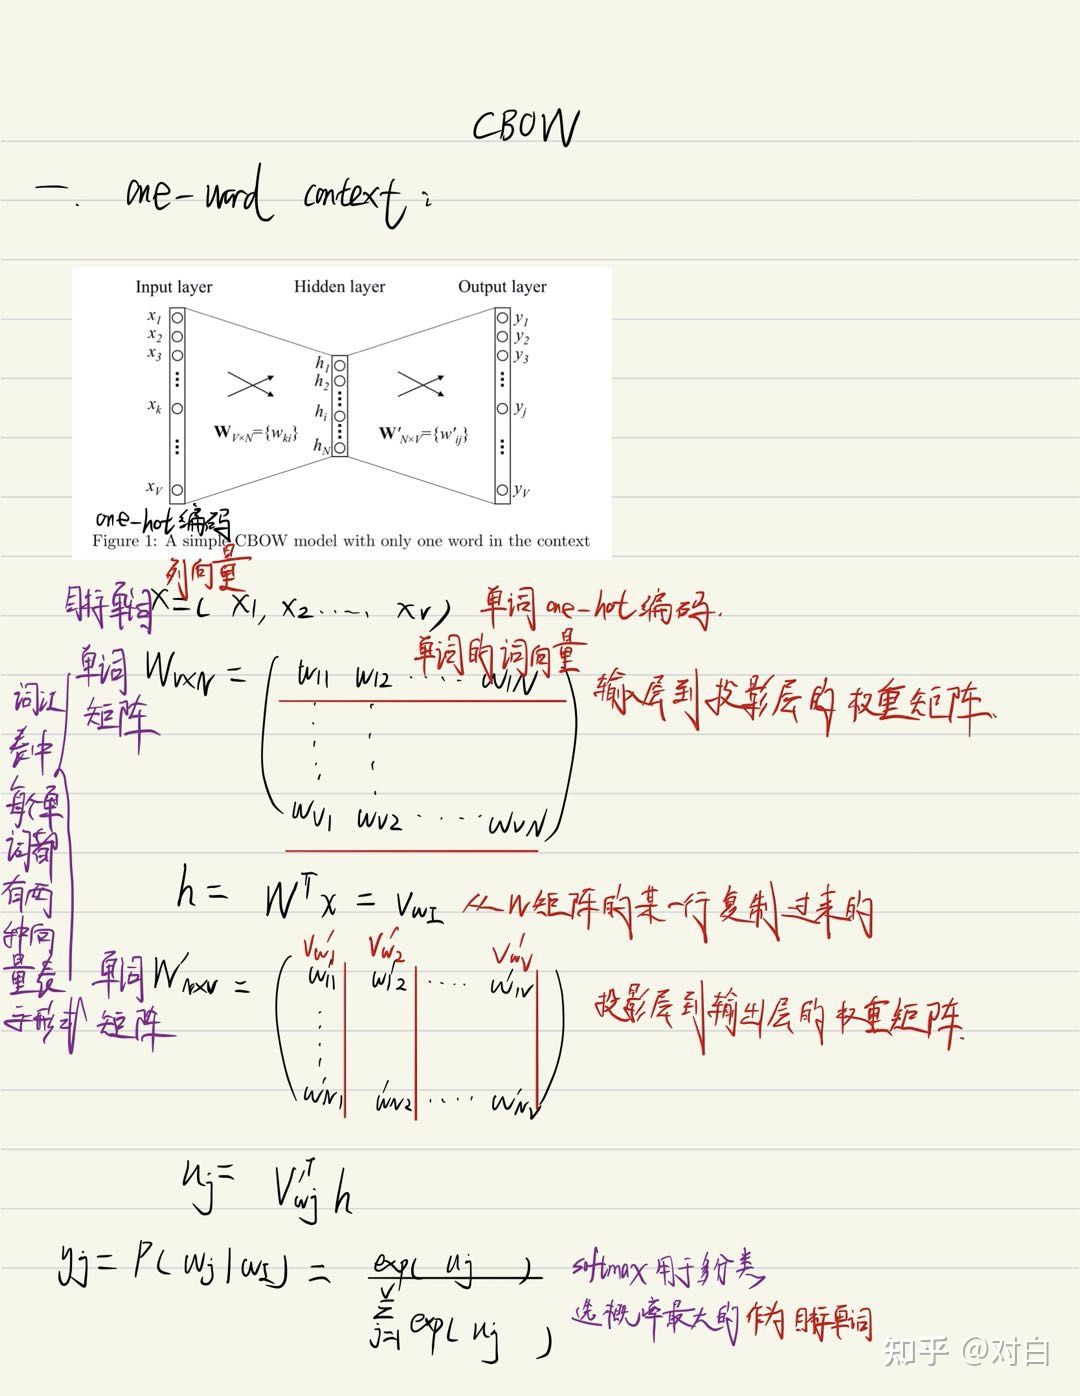 CBOW
一. one-word context:
Input layer Hidden layer Output layer
x1 x2 x3 xk xV
h1 h2 hi hN
y1 y2 y3 yj yV
W_{V×N}={w_{ki}} W'_{N×V}={w'_{ij}}
one-hot编码
Figure 1: A simple CBOW model with only one word in the context
列向量
目标单词 x=( x1, x2 ....., xv) 单词one-hot编码.
单词的词向量
单词矩阵 W_{V×N} = ( w11 w12 ..... w1N
wV1 wV2 ..... wVN ) 输入层到投影层的权重矩阵.
词汇表中每个单词都有两种向量表示形式
h = W^T x = v_{wI} 从W矩阵的某一行复制过来的
v'_{w1} v'_{w2} v'_{wV}
单词矩阵 W'_{N×V} = ( w'11 w'12 .... w'1V
w'N1 w'N2 .... w'NV ) 投影层到输出层的权重矩阵.
uj = v'^T_{wj} h
yj = P( wj | wI ) = exp( uj ) / Σ_{j=1}^{V} exp( uj )
softmax 用于多分类
选概率最大的作为目标单词
知乎 @对白